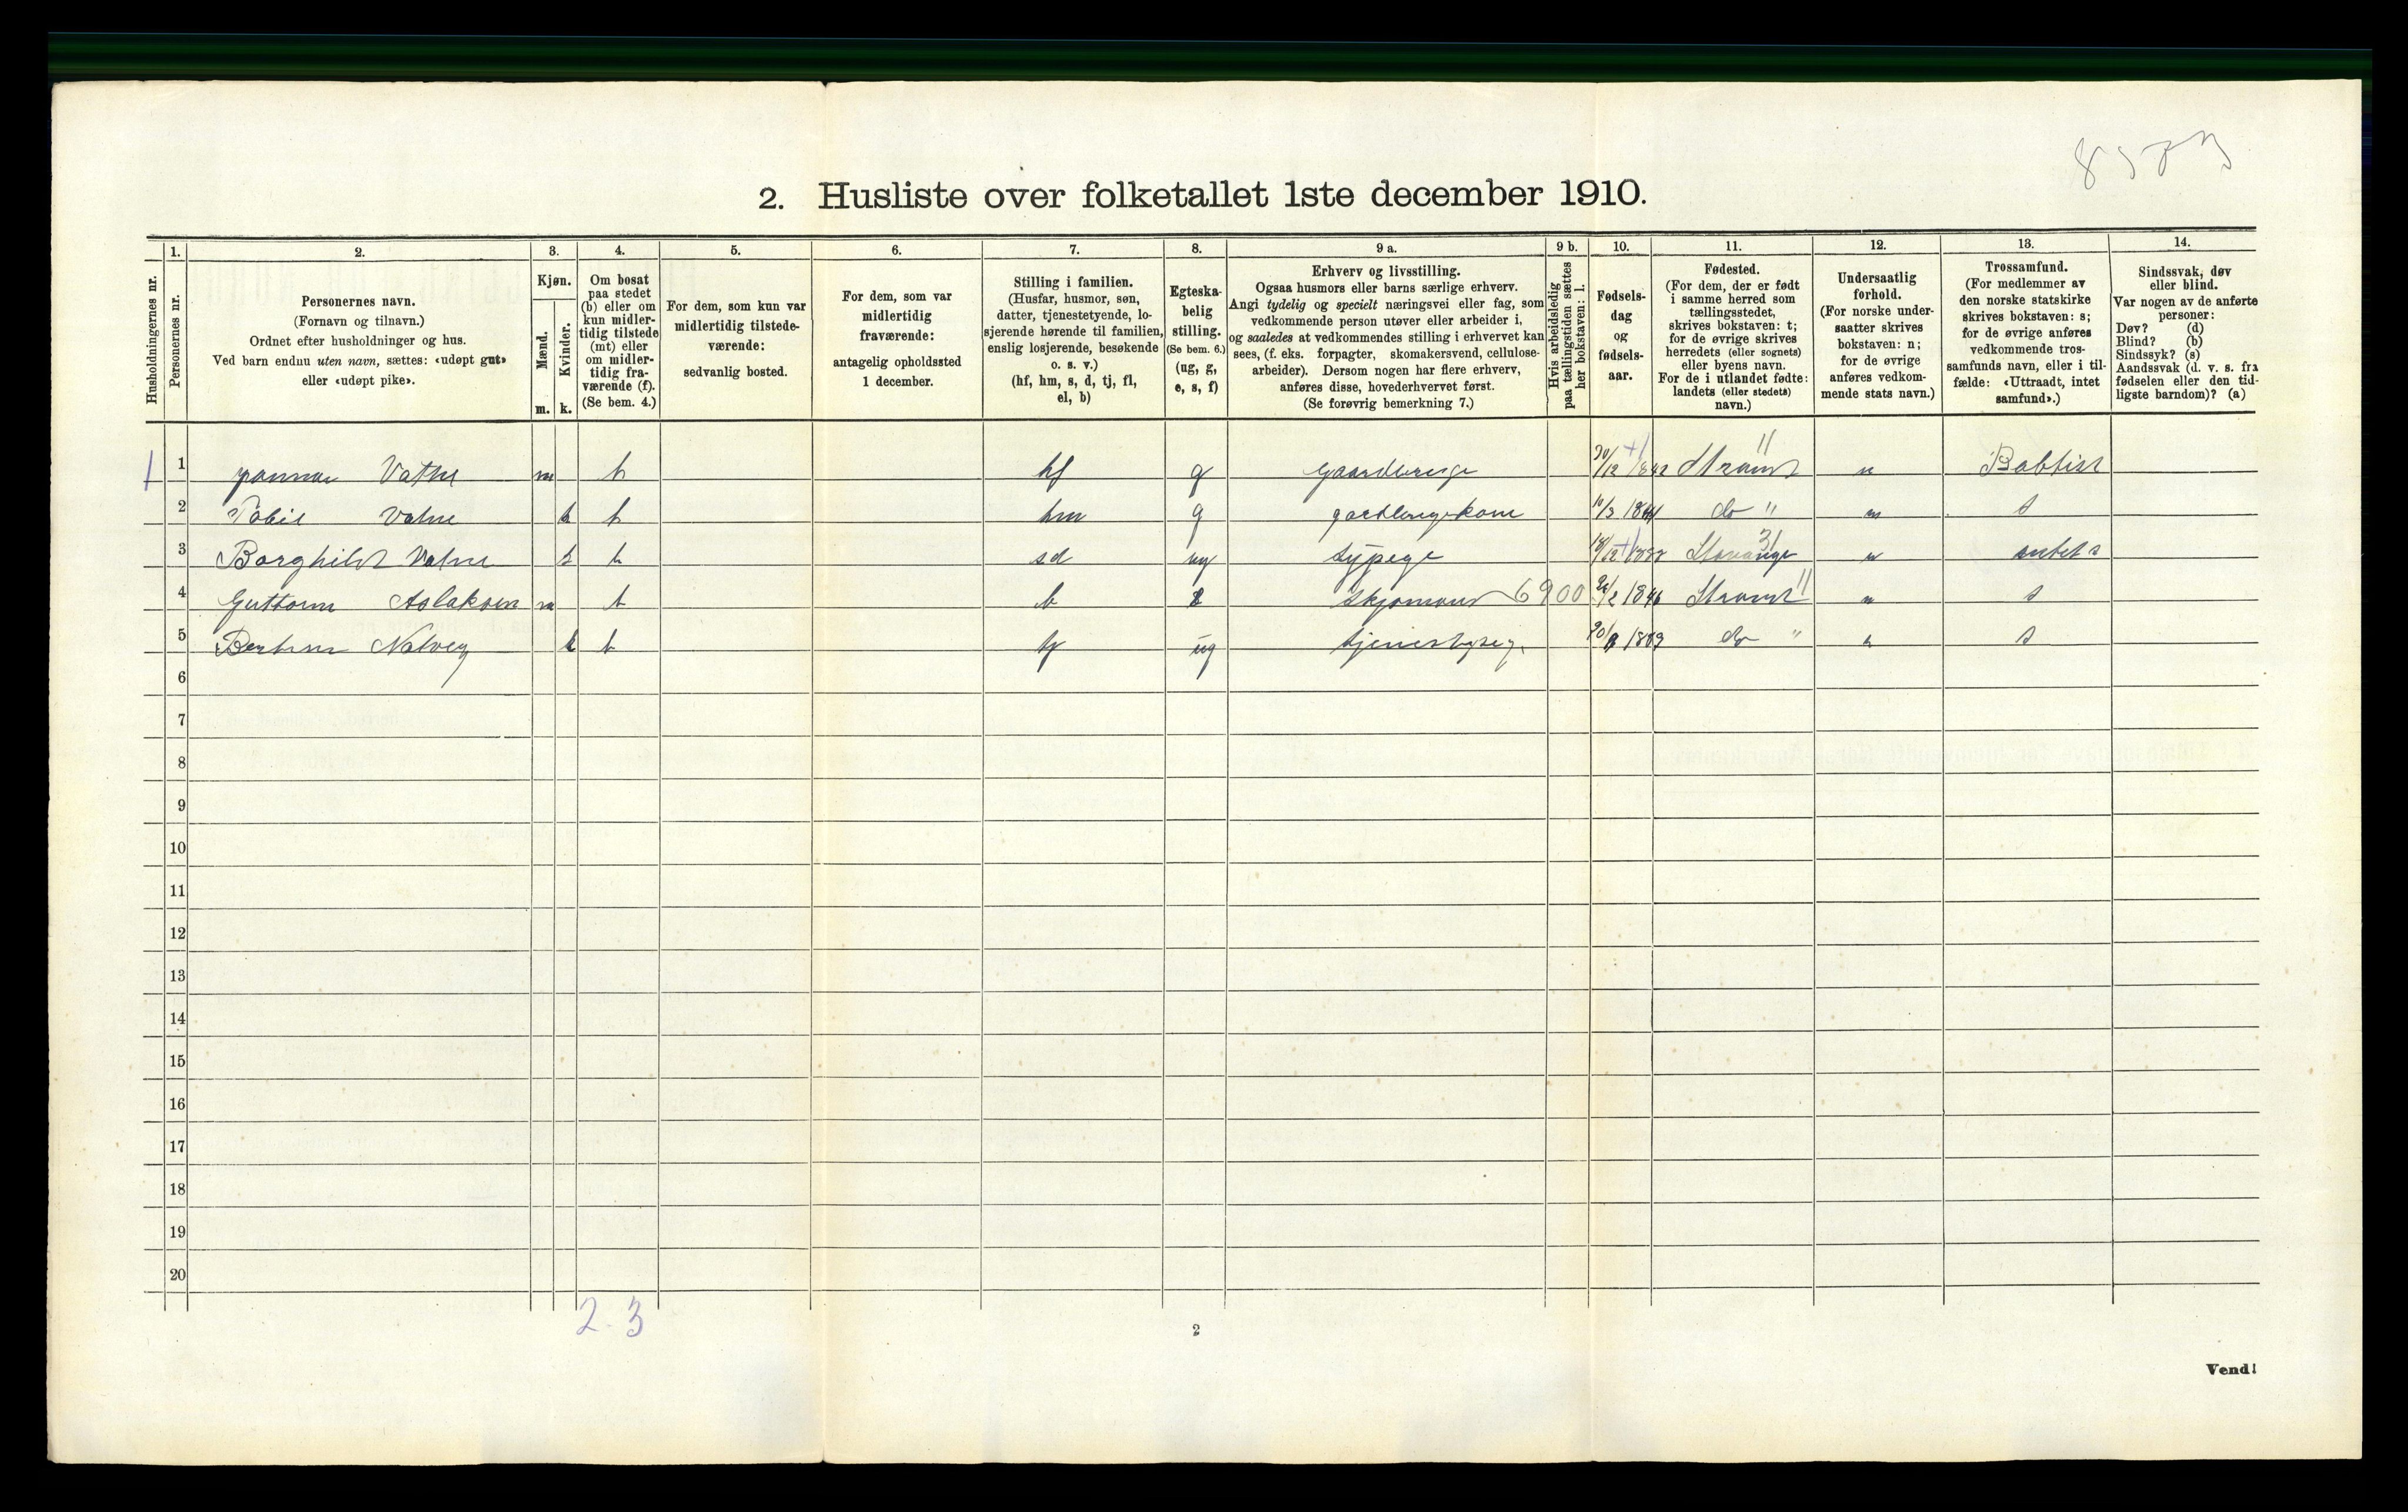 8573
2. Husliste over folketallet 1ste december 1910.
Husholdningernes nr.
1. Personernes nr.
2. Personernes navn.
(Fornavn og tilnavn.)
Ordnet efter husholdninger og hus.
Ved barn endnu uten navn, sættes: «udøpt gut»
eller «udøpt pike».
3. Kjøn.
Mænd. m.
Kvinder. k.
4. Om bosat
paa stedet
(b) eller om
kun midler-
tidig tilstede
(mt) eller
om midler-
tidig fra-
værende (f).
(Se bem. 4.)
5. For dem, som kun var
midlertidig tilstede-
værende:
sedvanlig bosted.
6. For dem, som var
midlertidig
fraværende:
antagelig opholdssted
1 december.
7. Stilling i familien.
(Husfar, husmor, søn,
datter, tjenestetyende, lo-
sjerende hørende til familien,
enslig losjerende, besøkende
o. s. v.)
(hf, hm, s, d, tj, fl,
el, b)
8. Egteska-
belig
stilling.
(Se bem. 6.)
(ug, g,
e, s, f)
9 a. Erhverv og livsstilling.
Ogsaa husmors eller barns særlige erhverv.
Angi tydelig og specielt næringsvei eller fag, som
vedkommende person utøver eller arbeider i,
og saaledes at vedkommendes stilling i erhvervet kan
sees, (f. eks. forpagter, skomakersvend, cellulose-
arbeider). Dersom nogen har flere erhverv,
anføres disse, hovederhvervet først.
(Se forøvrig bemerkning 7.)
9 b. Hvis arbeidsledig
paa tællingstiden sættes
her bokstaven: l.
10. Fødsels-
dag
og
fødsels-
aar.
11. Fødested.
(For dem, der er født
i samme herred som
tællingsstedet,
skrives bokstaven: t;
for de øvrige skrives
herredets (eller sognets)
eller byens navn.
For de i utlandet fødte:
landets (eller stedets)
navn.)
12. Undersaatlig
forhold.
(For norske under-
saatter skrives
bokstaven: n;
for de øvrige
anføres vedkom-
mende stats navn.)
13. Trossamfund.
(For medlemmer av
den norske statskirke
skrives bokstaven: s;
for de øvrige anføres
vedkommende tros-
samfunds navn, eller i til-
fælde: «Uttraadt, intet
samfund».)
14. Sindssvak, døv
eller blind.
Var nogen av de anførte
personer:
Døv? (d)
Blind? (b)
Sindssyk? (s)
Aandssvak (d. v. s. fra
fødselen eller den tid-
ligste barndom)? (a)
1 Vatne m b hf g Gaardbruge Strand n Babtist
2 Valne k b hm g do " n s
3 Borghild Vatne k b sd ug sypege Stavange n
4 Guttorm Aslaksen m b b 6900 Strand n s
5 k b tj ug do " n s
6
7
8
9
10
11
12
13
14
15
16
17
18
19
20
2 3
2
Vend!